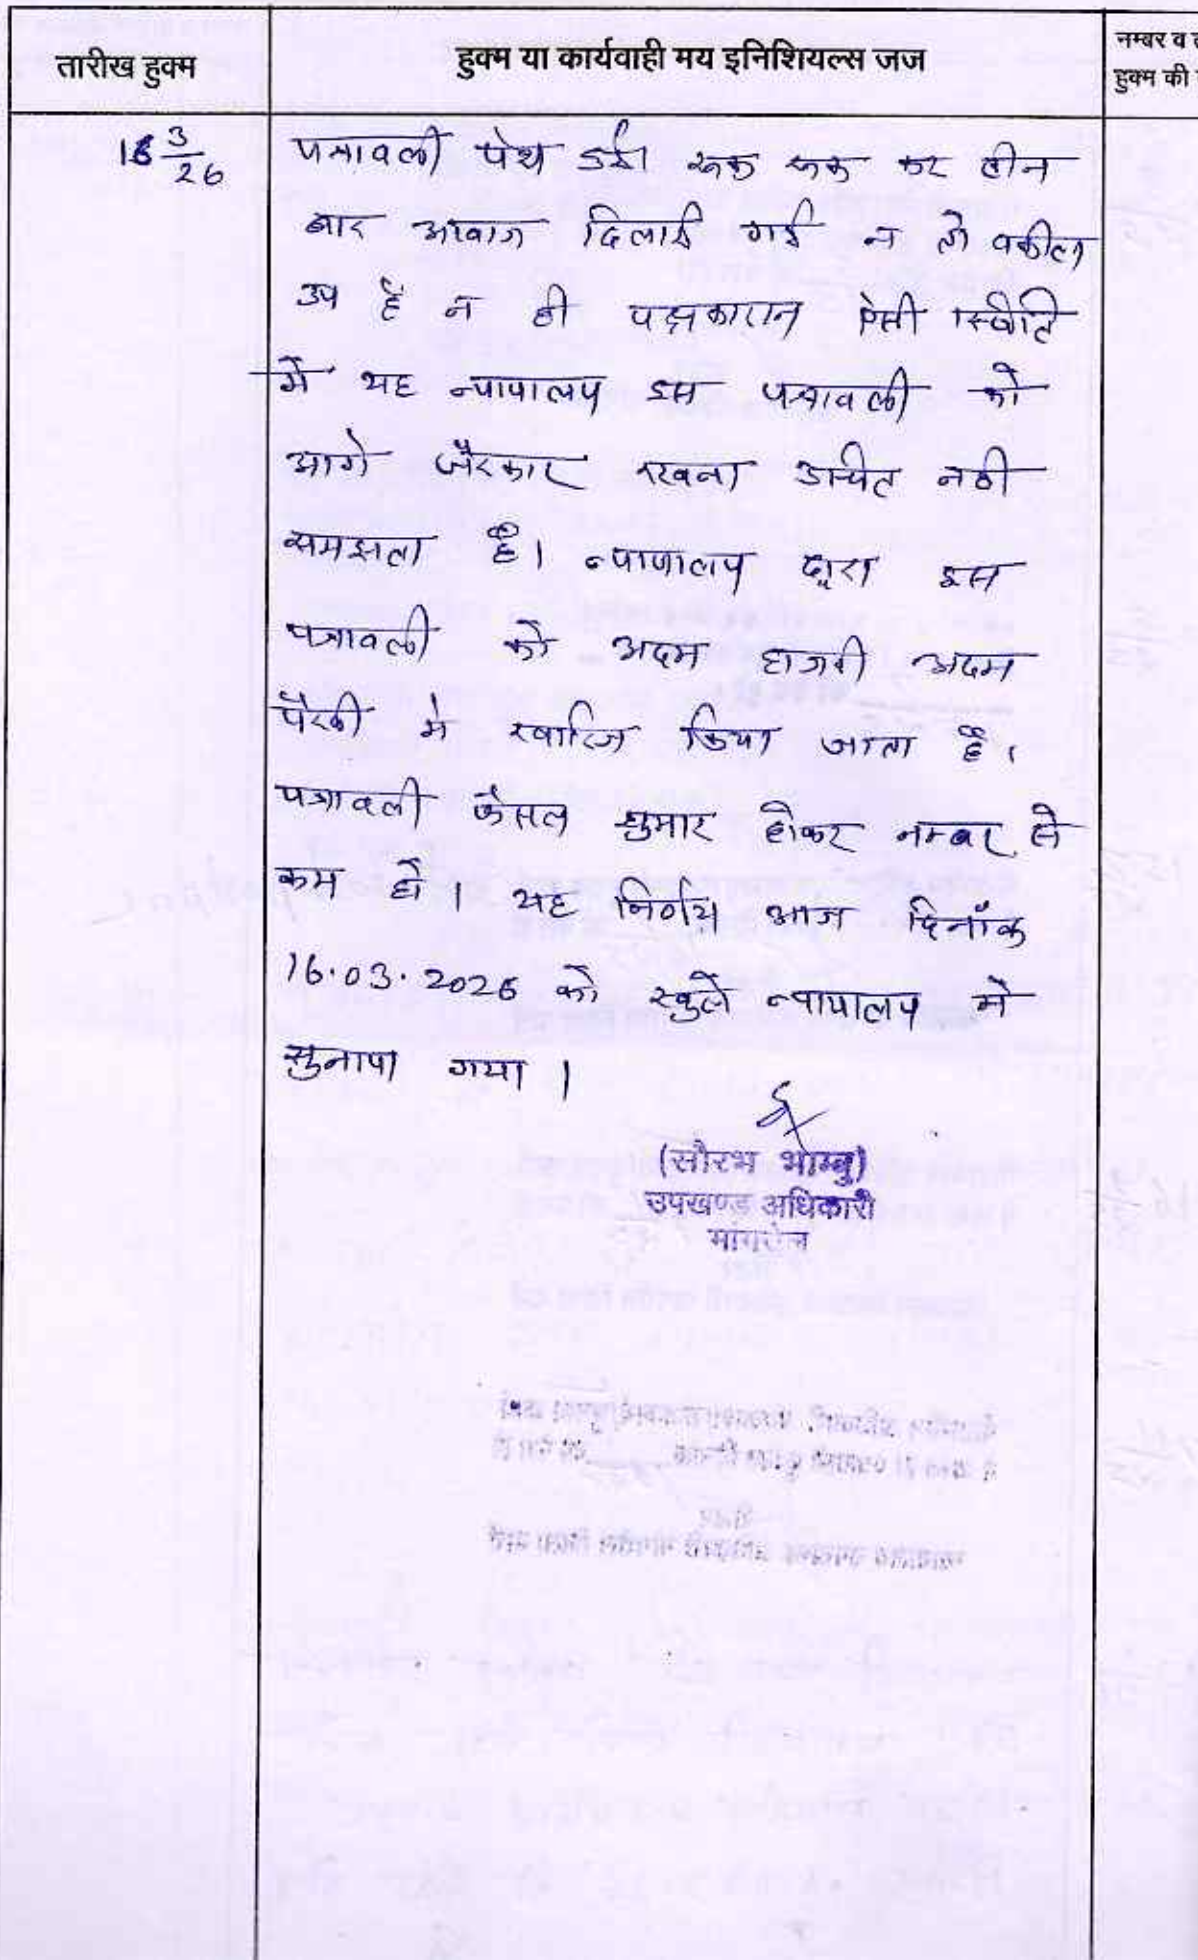 तारीख हुक्म
हुक्म या कार्यवाही मय इनिशियल्स जज
नम्बर व
हुक्म की
16 3/26
पत्रावली पेश हुई। रूक रूक कर तीन
बार आवाज दिलाई गई न तो वकील
उप है न ही पक्षकारान ऐसी स्थिति
में यह न्यायालय इस पत्रावली को
आगे जैरकार रखना उचित नही
समझता है। न्यायालय द्वारा इस
पत्रावली को अदम हाजरी अदम
पैरवी मे खारिज किया जाता है।
पत्रावली फैसल शुमार होकर नम्बर से
कम हो। यह निर्णय आज दिनाँक
16.03.2026 को खुले न्यायालय मे
सुनाया गया।
(सौरभ भाम्बु)
उपखण्ड अधिकारी
मांगरोल